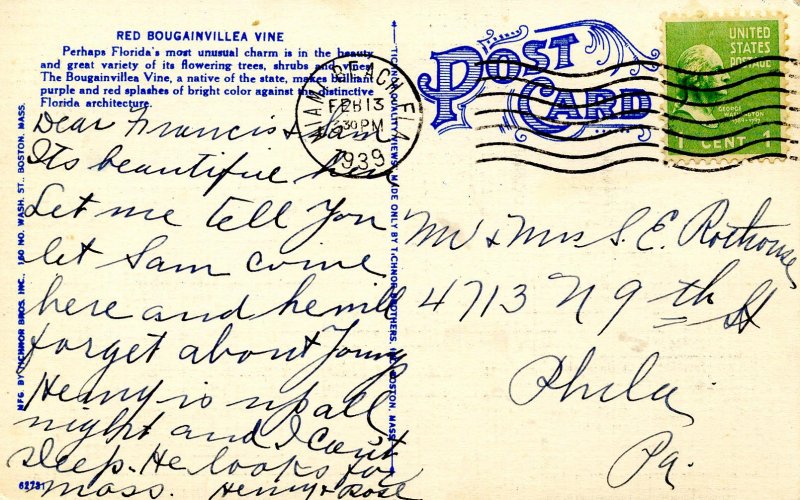 RED BOUGAINVILLEA VINE
Perhaps Florida's most unusual charm is in the beauty
and great variety of its flowering trees, shrubs and vines.
The Bougainvillea Vine, a native of the state, makes brilliant
purple and red splashes of bright color against the distinctive
Florida architecture.
Dear Francis &
Its beautiful here
Let me tell you
let Sam come
here and he will
forget about Young
Henry is up all
night and I cant
sleep. He looks for
moss. Henry & Rose
6273
MFG. BY TICHNOR BROS. INC., 160 NO. WASH. ST., BOSTON, MASS.
TICHNOR QUALITY VIEWS, MADE ONLY BY TICHNOR BROTHERS, INC., BOSTON, MASS.
POST
CARD
MIAMI BEACH FLA
FEB 13
30 PM
1939
UNITED
STATES
POSTAGE
GEORGE
WASHINGTON
1 CENT 1
Mr & Mrs S. E. Rothouse
4713 N 9th St
Phila
Pa.